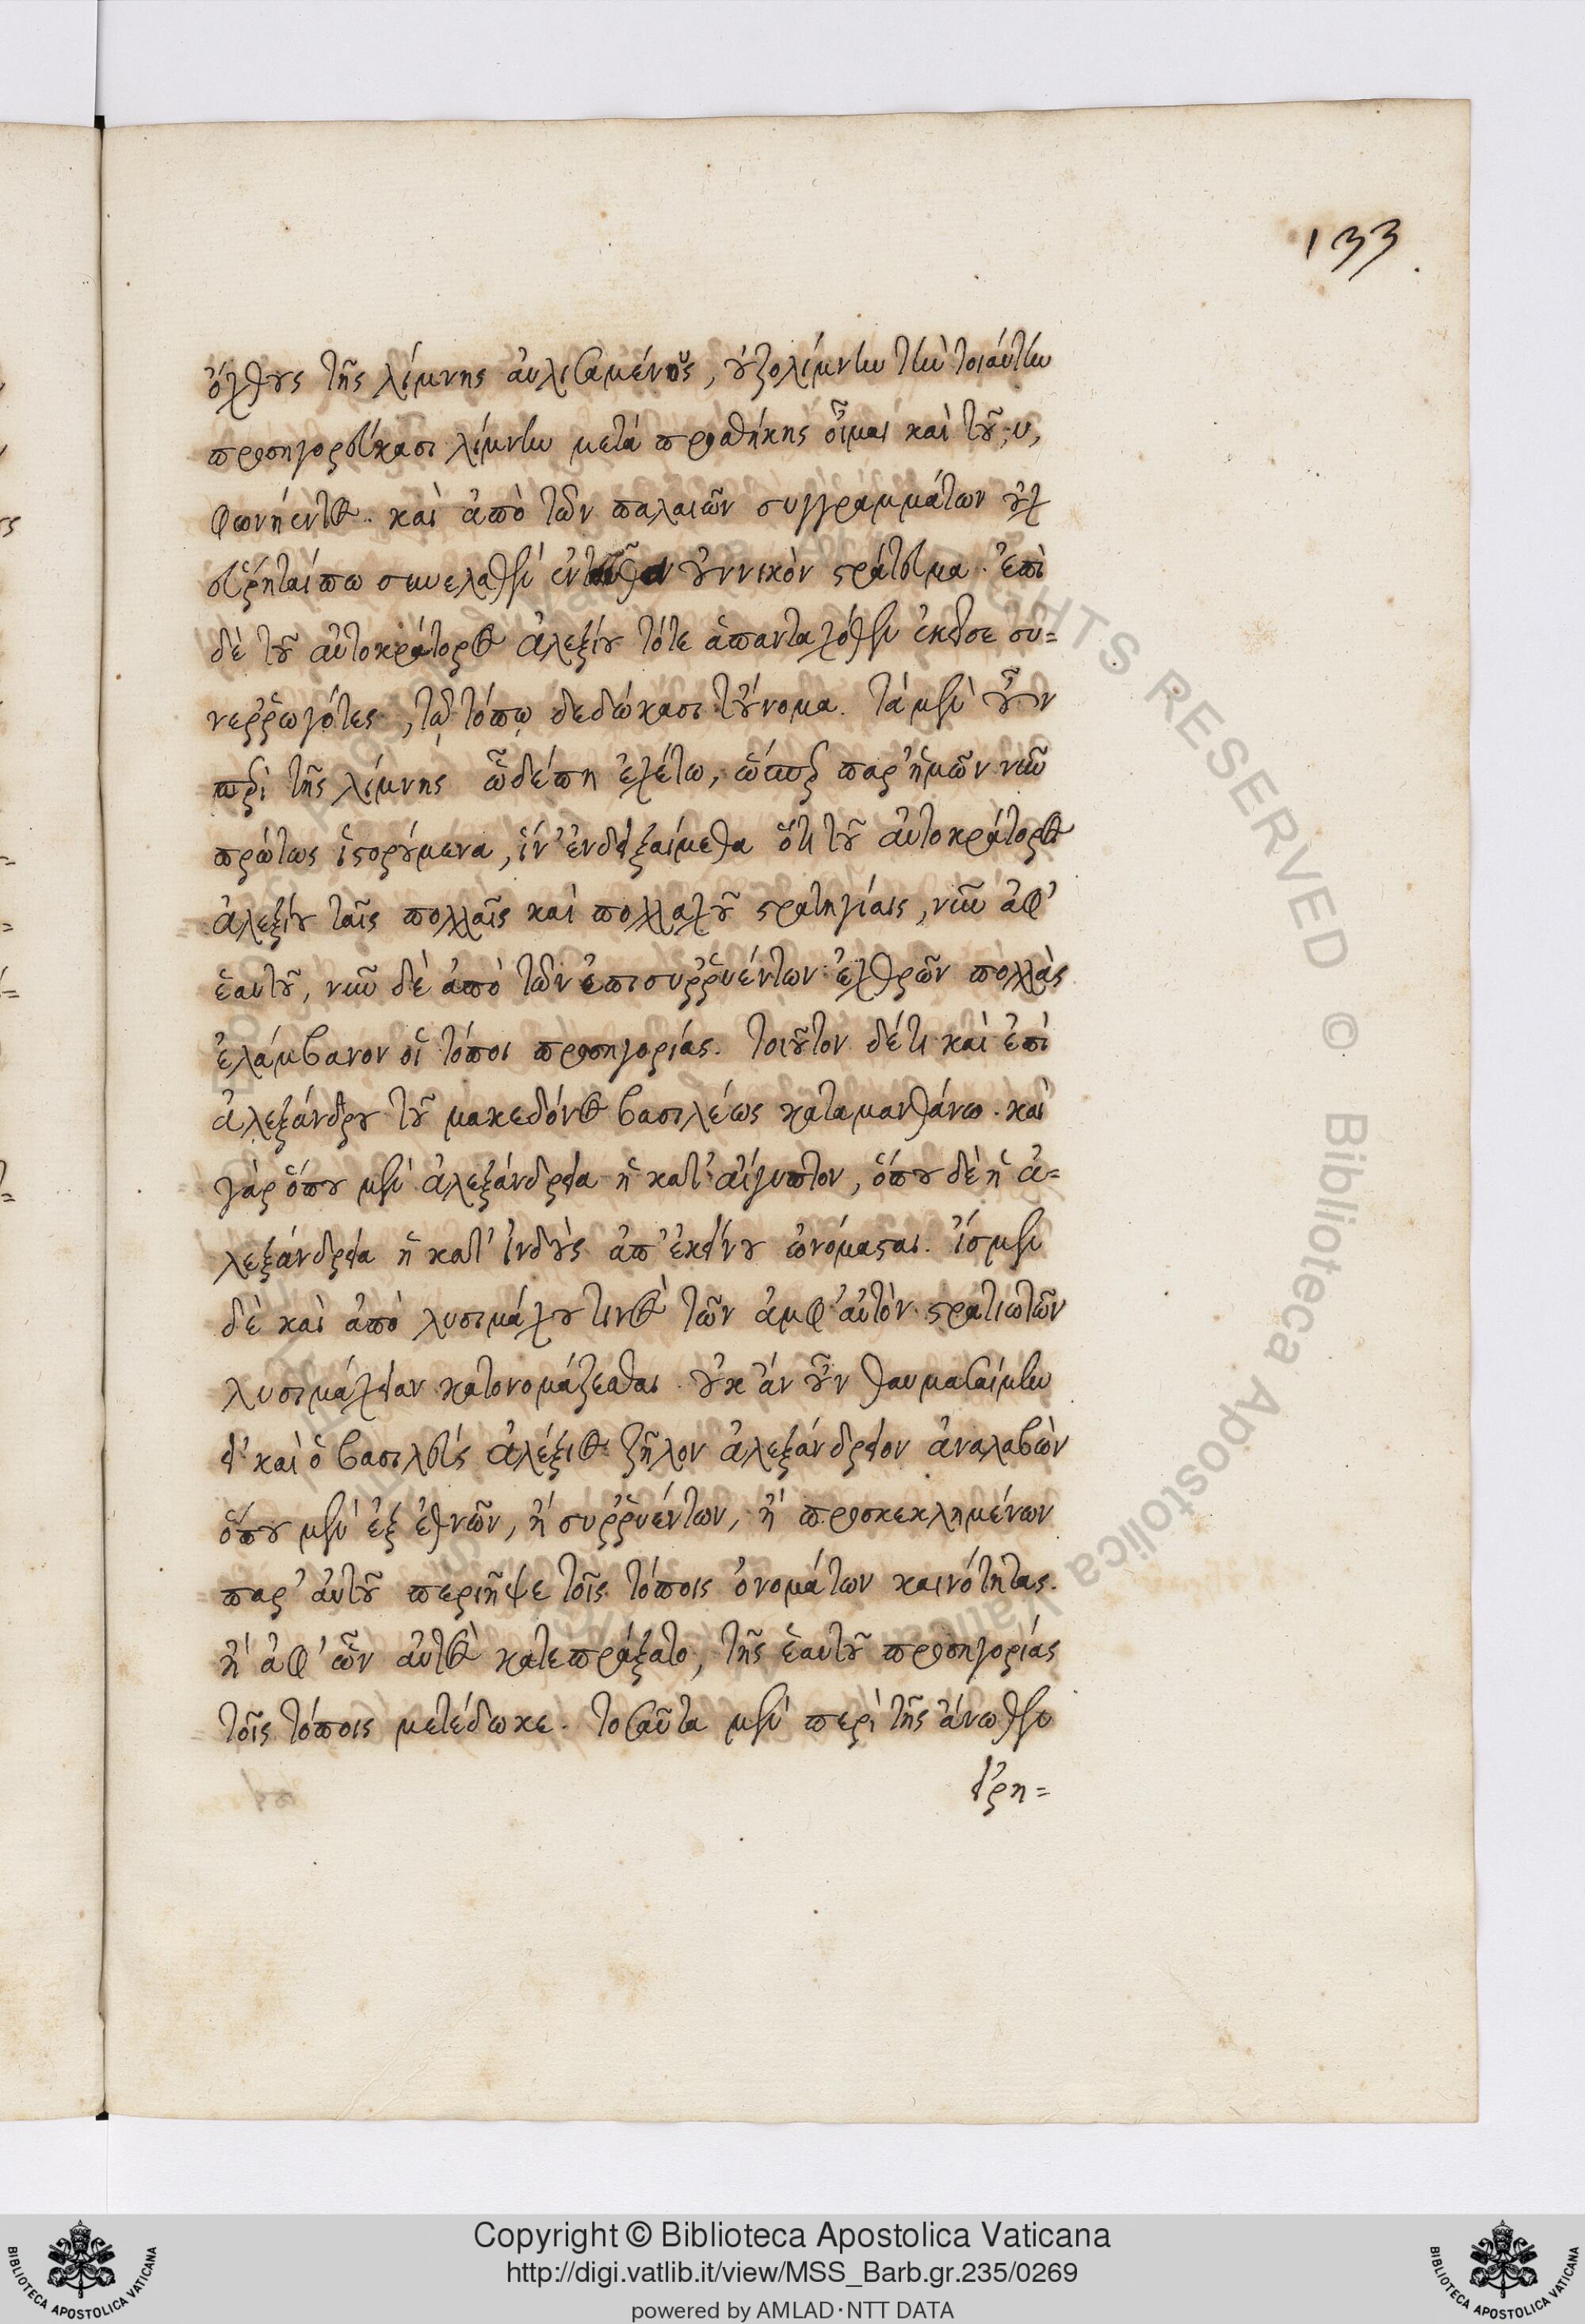 133
ὄχθους τῆς λίμνης αὐλισαμένους, οὐζολίμνην τὴν τοιαύτην
προσηγορεύκασι λίμνην μετὰ προσθήκης οἶμαι καὶ τοῦ, υ,
φωνήεντος. καὶ ἀπὸ τῶν παλαιῶν συγγραμμάτων οὐχ
εὕρηταί πω συνελαθὲν οὐννικὸν στράτευμα. ἐπὶ
δὲ τοῦ αὐτοκράτορος ἀλεξίου τότε ἁπανταχόθεν ἐκεῖσε συ=
νεῤῥωγότες, τῷ τόπῳ δεδώκασι τοὔνομα. τὰ μὲν οὖν
περὶ τῆς λίμνης ὧδέ πη ἐχέτω, ὥσπερ παρ' ἡμῶν νῦν
πρώτως ἱστορούμενα, ἵν' ἐνδειξαίμεθα ὅτι τοῦ αὐτοκράτορος
ἀλεξίου ταῖς πολλαῖς καὶ πολλαχοῦ στρατηγίαις, νῦν ἀφ'
ἑαυτοῦ, νῦν δὲ ἀπὸ τῶν ἐπισυῤῥυέντων ἐχθρῶν πολλὰς
ἐλάμβανον οἱ τόποι προσηγορίας. τοιοῦτον δέ τι καὶ ἐπὶ
ἀλεξάνδρου τοῦ μακεδόνος βασιλέως καταμανθάνω. καὶ
γὰρ ὅπου μὲν ἀλεξάνδρεια ἡ κατ' αἴγυπτον, ὅπου δὲ ἡ ἀ=
λεξάνδρεια ἡ κατ' ἰνδοὺς ἀπ' ἐκείνου ὠνόμασται. ἴσμεν
δὲ καὶ ἀπὸ λυσιμάχου τινὸς τῶν ἀμφ' αὐτὸν στρατιωτῶν
λυσιμάχειαν κατονομάζεσθαι. οὐκ ἂν οὖν θαυμασαίμην
εἰ καὶ ὁ βασιλεὺς ἀλέξιος ζῆλον ἀλεξάνδρειον ἀναλαβὼν
ὅπου μὲν ἐξ ἐθνῶν, ἢ συῤῥυέντων, ἢ προσκεκλημένων
παρ' αὐτοῦ περιῆψε τοῖς τόποις ὀνομάτων καινότητας.
ἢ ἀφ' ὧν αὐτὸς κατεπράξατο, τῆς ἑαυτοῦ προσηγορίας
τοῖς τόποις μετέδωκε. τοσαῦτα μὲν περὶ τῆς ἄνωθεν
εἰρη=
RIGHTS RESERVED © Biblioteca Apostolica Vaticana
Copyright © Biblioteca Apostolica Vaticana
http://digi.vatlib.it/view/MSS_Barb.gr.235/0269
powered by AMLAD·NTT DATA
BIBLIOTECA APOSTOLICA VATICANA
BIBLIOTECA APOSTOLICA VATICANA